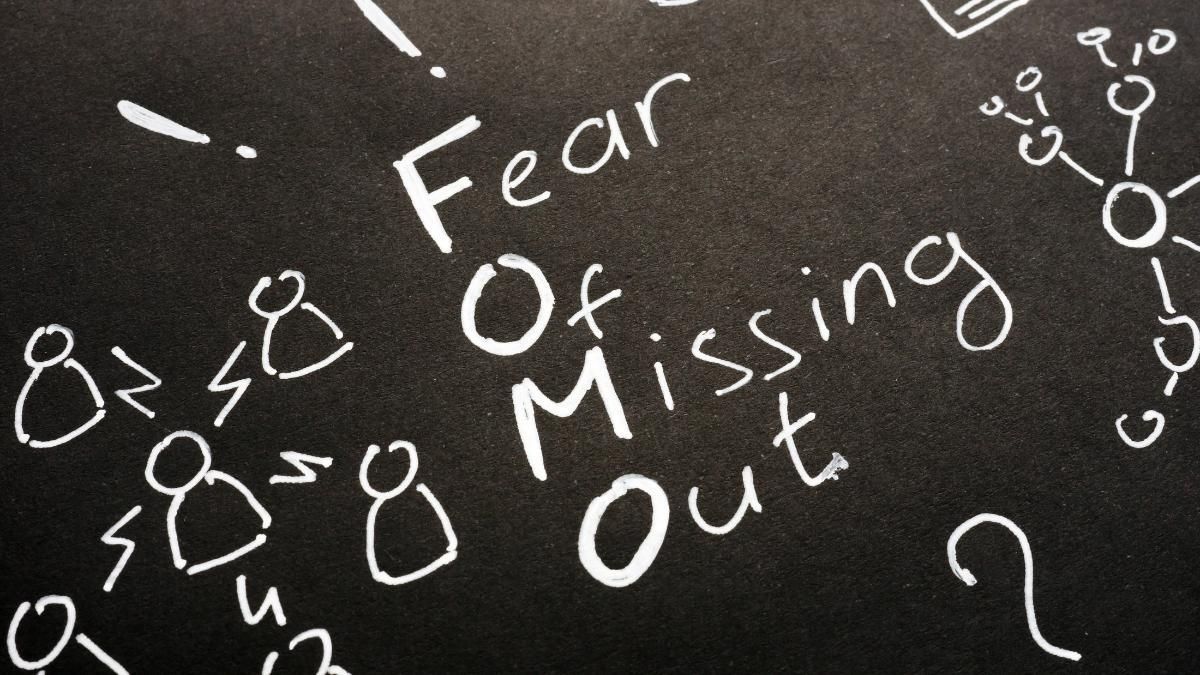 Fear
Of
Missing
Out
?